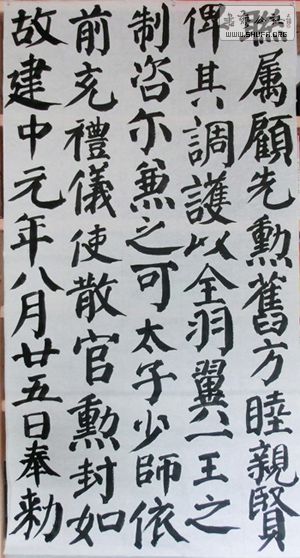 属顧先勳舊方睦親賢
俾其調護以全羽翼一王之
制咨尓兼之可太子少師依
前充禮儀使散官勳封如
故建中元年八月廿五日奉勅
WWW.SHUFA.ORG